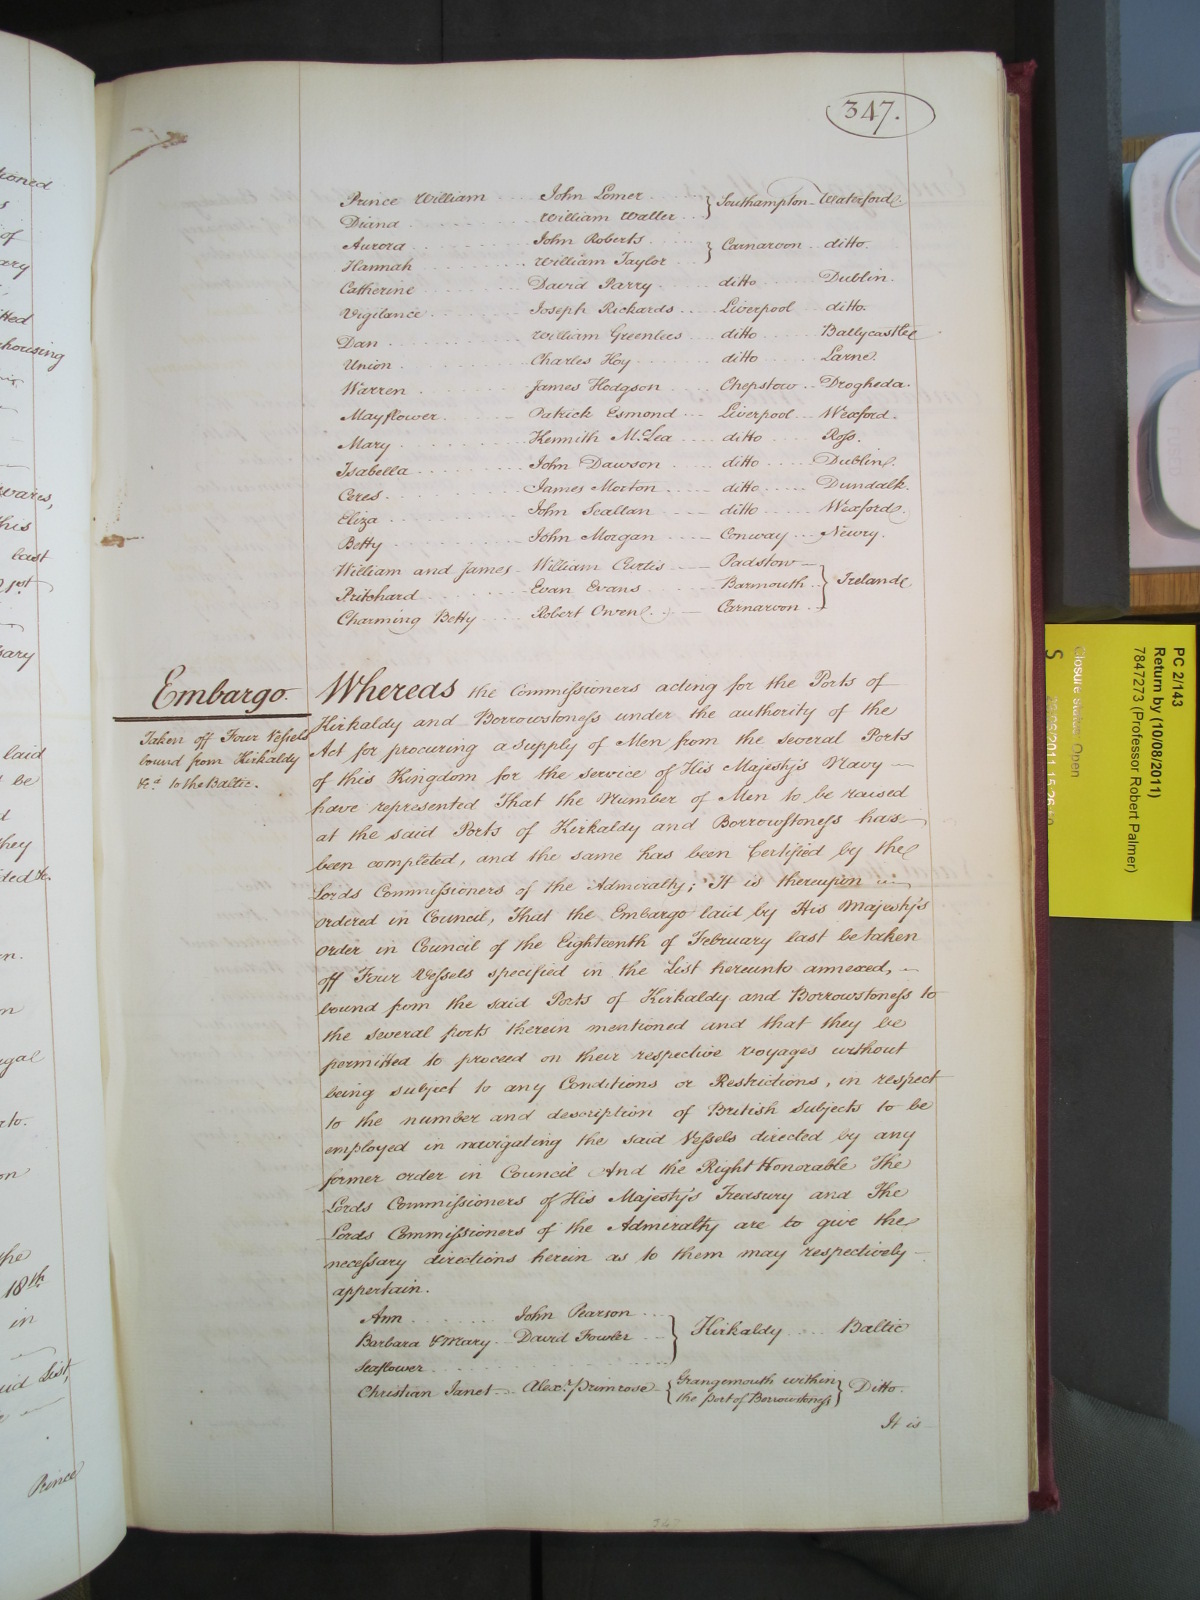 347.
Prince William John Lomer } Southampton Waterford
Diana William Waller
Aurora John Roberts } Carnarvon ditto.
Hannah William Taylor
Catherine David Parry ditto Dublin.
Vigilance Joseph Rickards Liverpool ditto.
Dan William Greenlies ditto Ballycastle
Union Charles Hoy ditto Larne.
Warren James Hodgson Chepstow Drogheda.
Mayflower Patrick Esmond Liverpool Wexford.
Mary Kennith McLea ditto Ross.
Isabella John Dawson ditto Dublin.
Ceres James Morton ditto Dundalk.
Eliza John Scallan ditto Wexford.
Betty John Morgan Conway Newry.
William and James William Curtis Padstow
Pritchard Evan Evans Barmouth } Ireland
Charming Betty Robert Owen Carnarvon
Embargo.
Taken off Four Vessels
bound from Kirkaldy
&ca. to the Baltic.
Whereas the Commissioners acting for the Ports of
Kirkaldy and Borrowstoness under the authority of the
Act for procuring a supply of Men from the several Ports
of this Kingdom for the service of His Majesty's Navy
have represented That the Number of Men to be raised
at the said Ports of Kirkaldy and Borrowstoness has
been completed, and the same has been Certified by the
Lords Commissioners of the Admiralty; It is thereupon
ordered in Council, That the Embargo laid by His Majesty's
Order in Council of the Eighteenth of February last be taken
off Four Vessels specified in the List hereunto annexed,
bound from the said Ports of Kirkaldy and Borrowstoness to
the several ports therein mentioned and that they be
permitted to proceed on their respective voyages without
being subject to any Conditions or Restrictions, in respect
to the number and description of British Subjects to be
employed in navigating the said Vessels directed by any
former order in Council And the Right Honorable The
Lords Commissioners of His Majesty's Treasury and The
Lords Commissioners of the Admiralty are to give the
necessary directions herein as to them may respectively
appertain.
Ann John Pearson
Barbara & Mary David Fowler } Kirkaldy Baltic
Seaflower
Christian Janet Alexr. Primrose { Grangemouth within
the port of Borrowstoness } Ditto.
It is
PC 2/143
Return by (10/08/2011)
7847273 (Professor Robert Palmer)
Closure status: Open
S